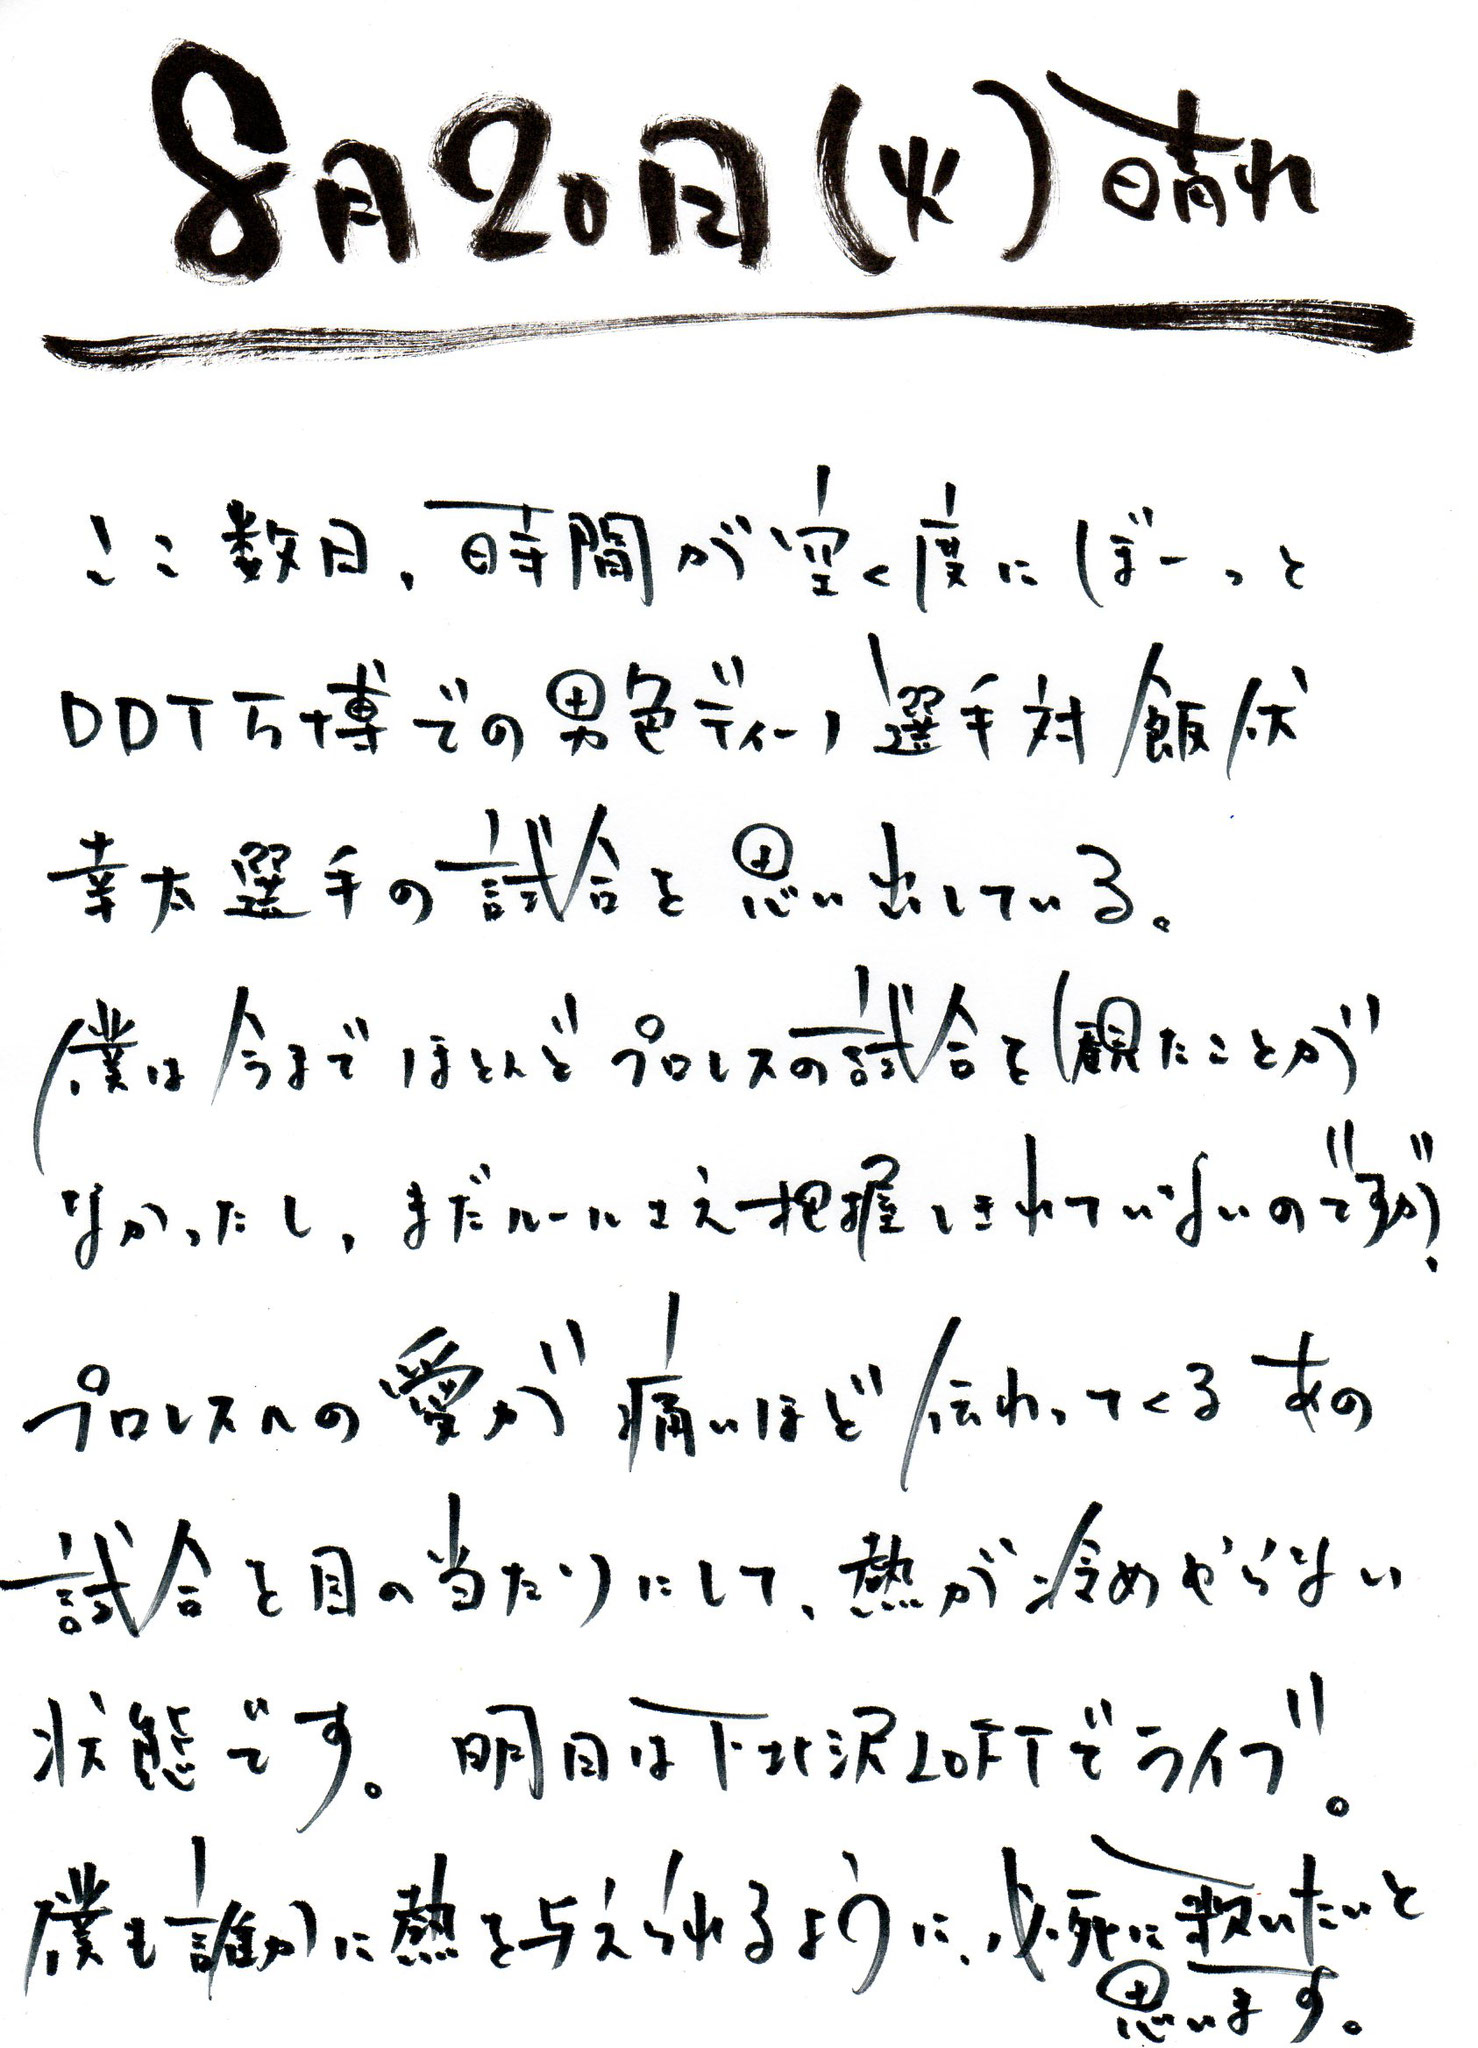 8月20日(火)晴れ
ここ数日、時間が空く度にぼーっと
DDT万博での男色ディーノ選手対飯伏
幸太選手の試合を思い出している。
僕は今までほとんどプロレスの試合を観たことが
なかったし、まだルールさえ把握しきれていないのですが、
プロレスへの愛が痛いほど伝わってくるあの
試合を目の当たりにして、熱が冷めやらない
状態です。明日は下北沢LOFTでライブ。
僕も誰かに熱を与えられるように、必死に歌いたいと
思います。